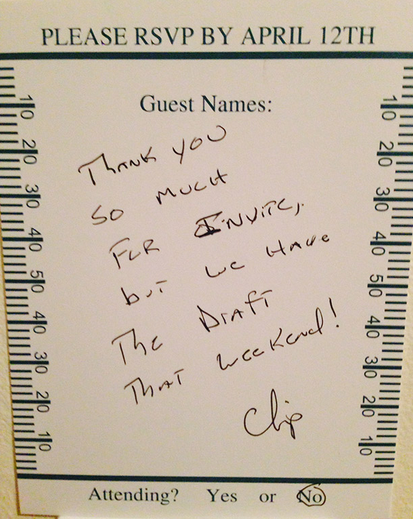 PLEASE RSVP BY APRIL 12TH
Guest Names:
THANK YOU
SO MUCH
FOR INVITE,
but we HAVE
THE DRAFT
THAT weekend!
Chip
Attending? Yes or No
10
20
30
40
50
40
30
20
10
10
20
30
40
50
40
30
20
10